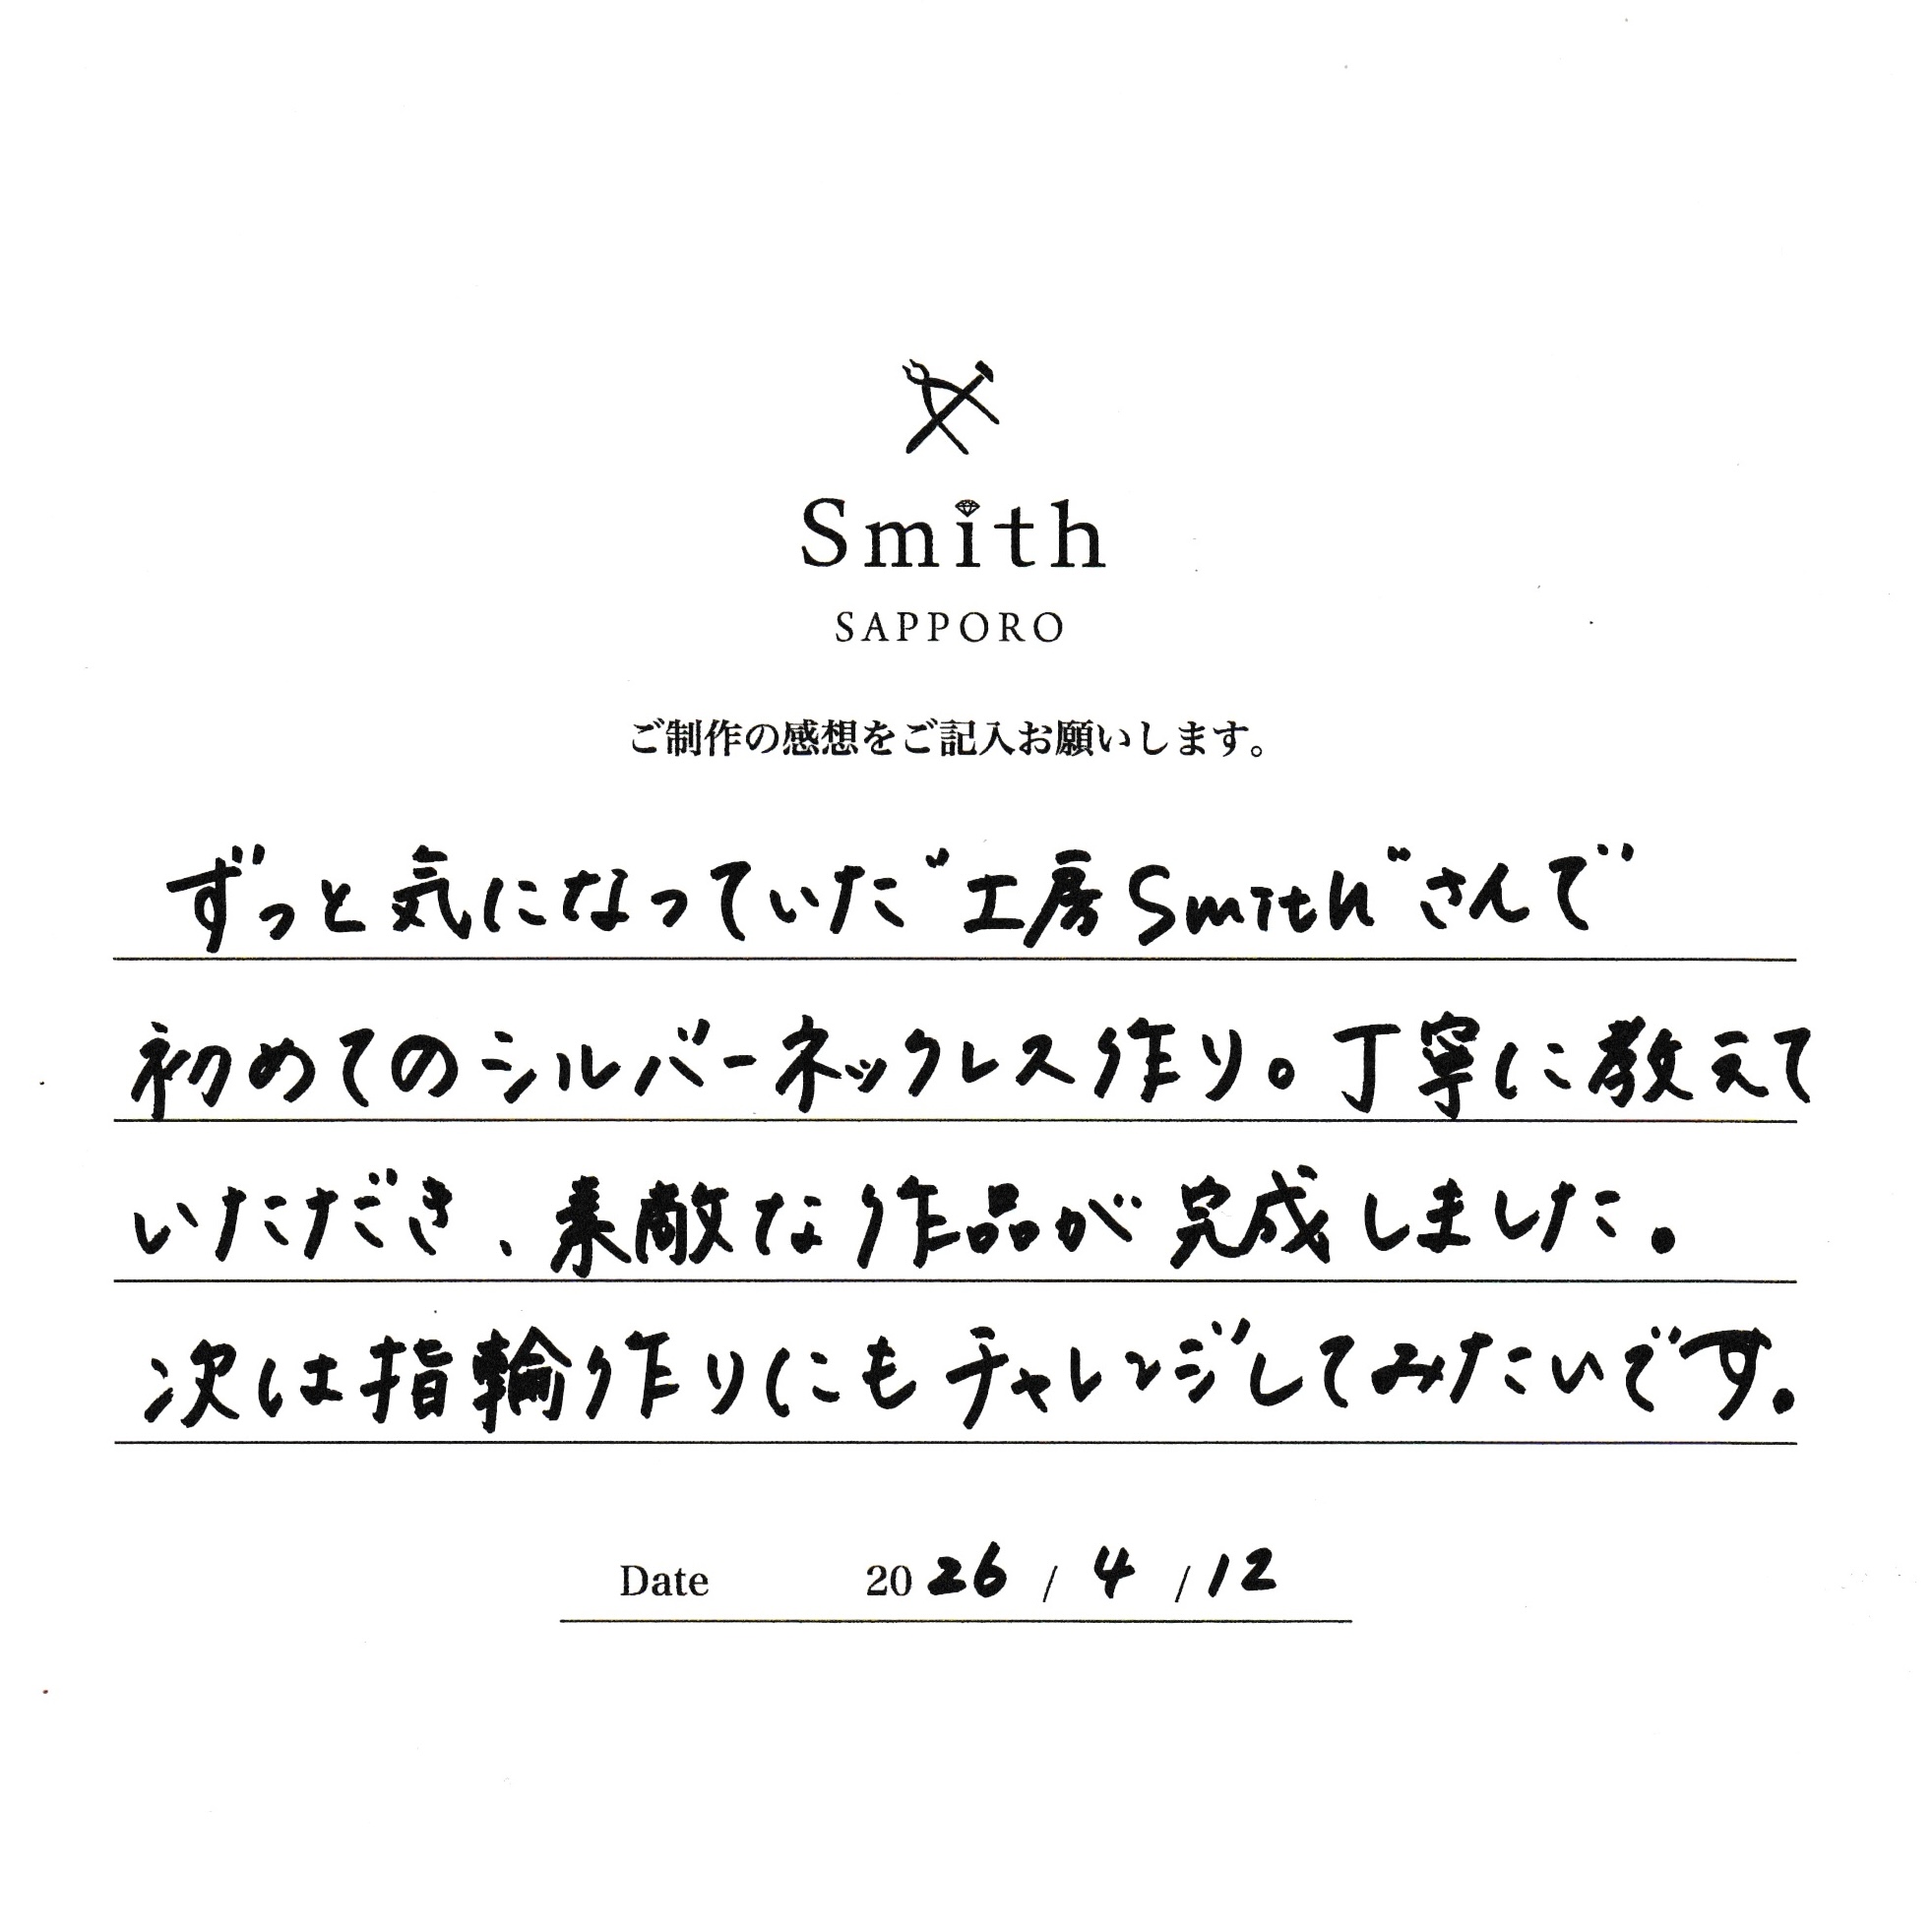 Smith
SAPPORO
ご制作の感想をご記入お願いします。
ずっと気になっていた"工房Smith"さんで
初めてのシルバーネックレス作り。丁寧に教えて
いただき、素敵な作品が完成しました。
次は指輪作りにもチャレンジしてみたいです。
Date 2026 / 4 / 12